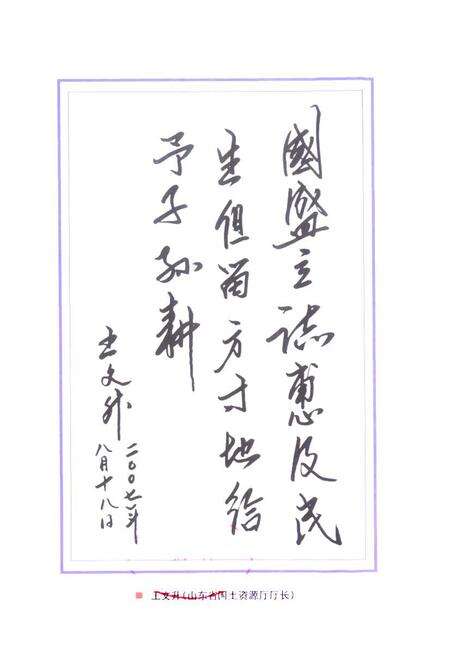 國盛立誌惠及民
生但留方寸地給
予子孙耕
王文升
二〇〇七年
八月十八日
王文升(山东省国土资源厅厅长)